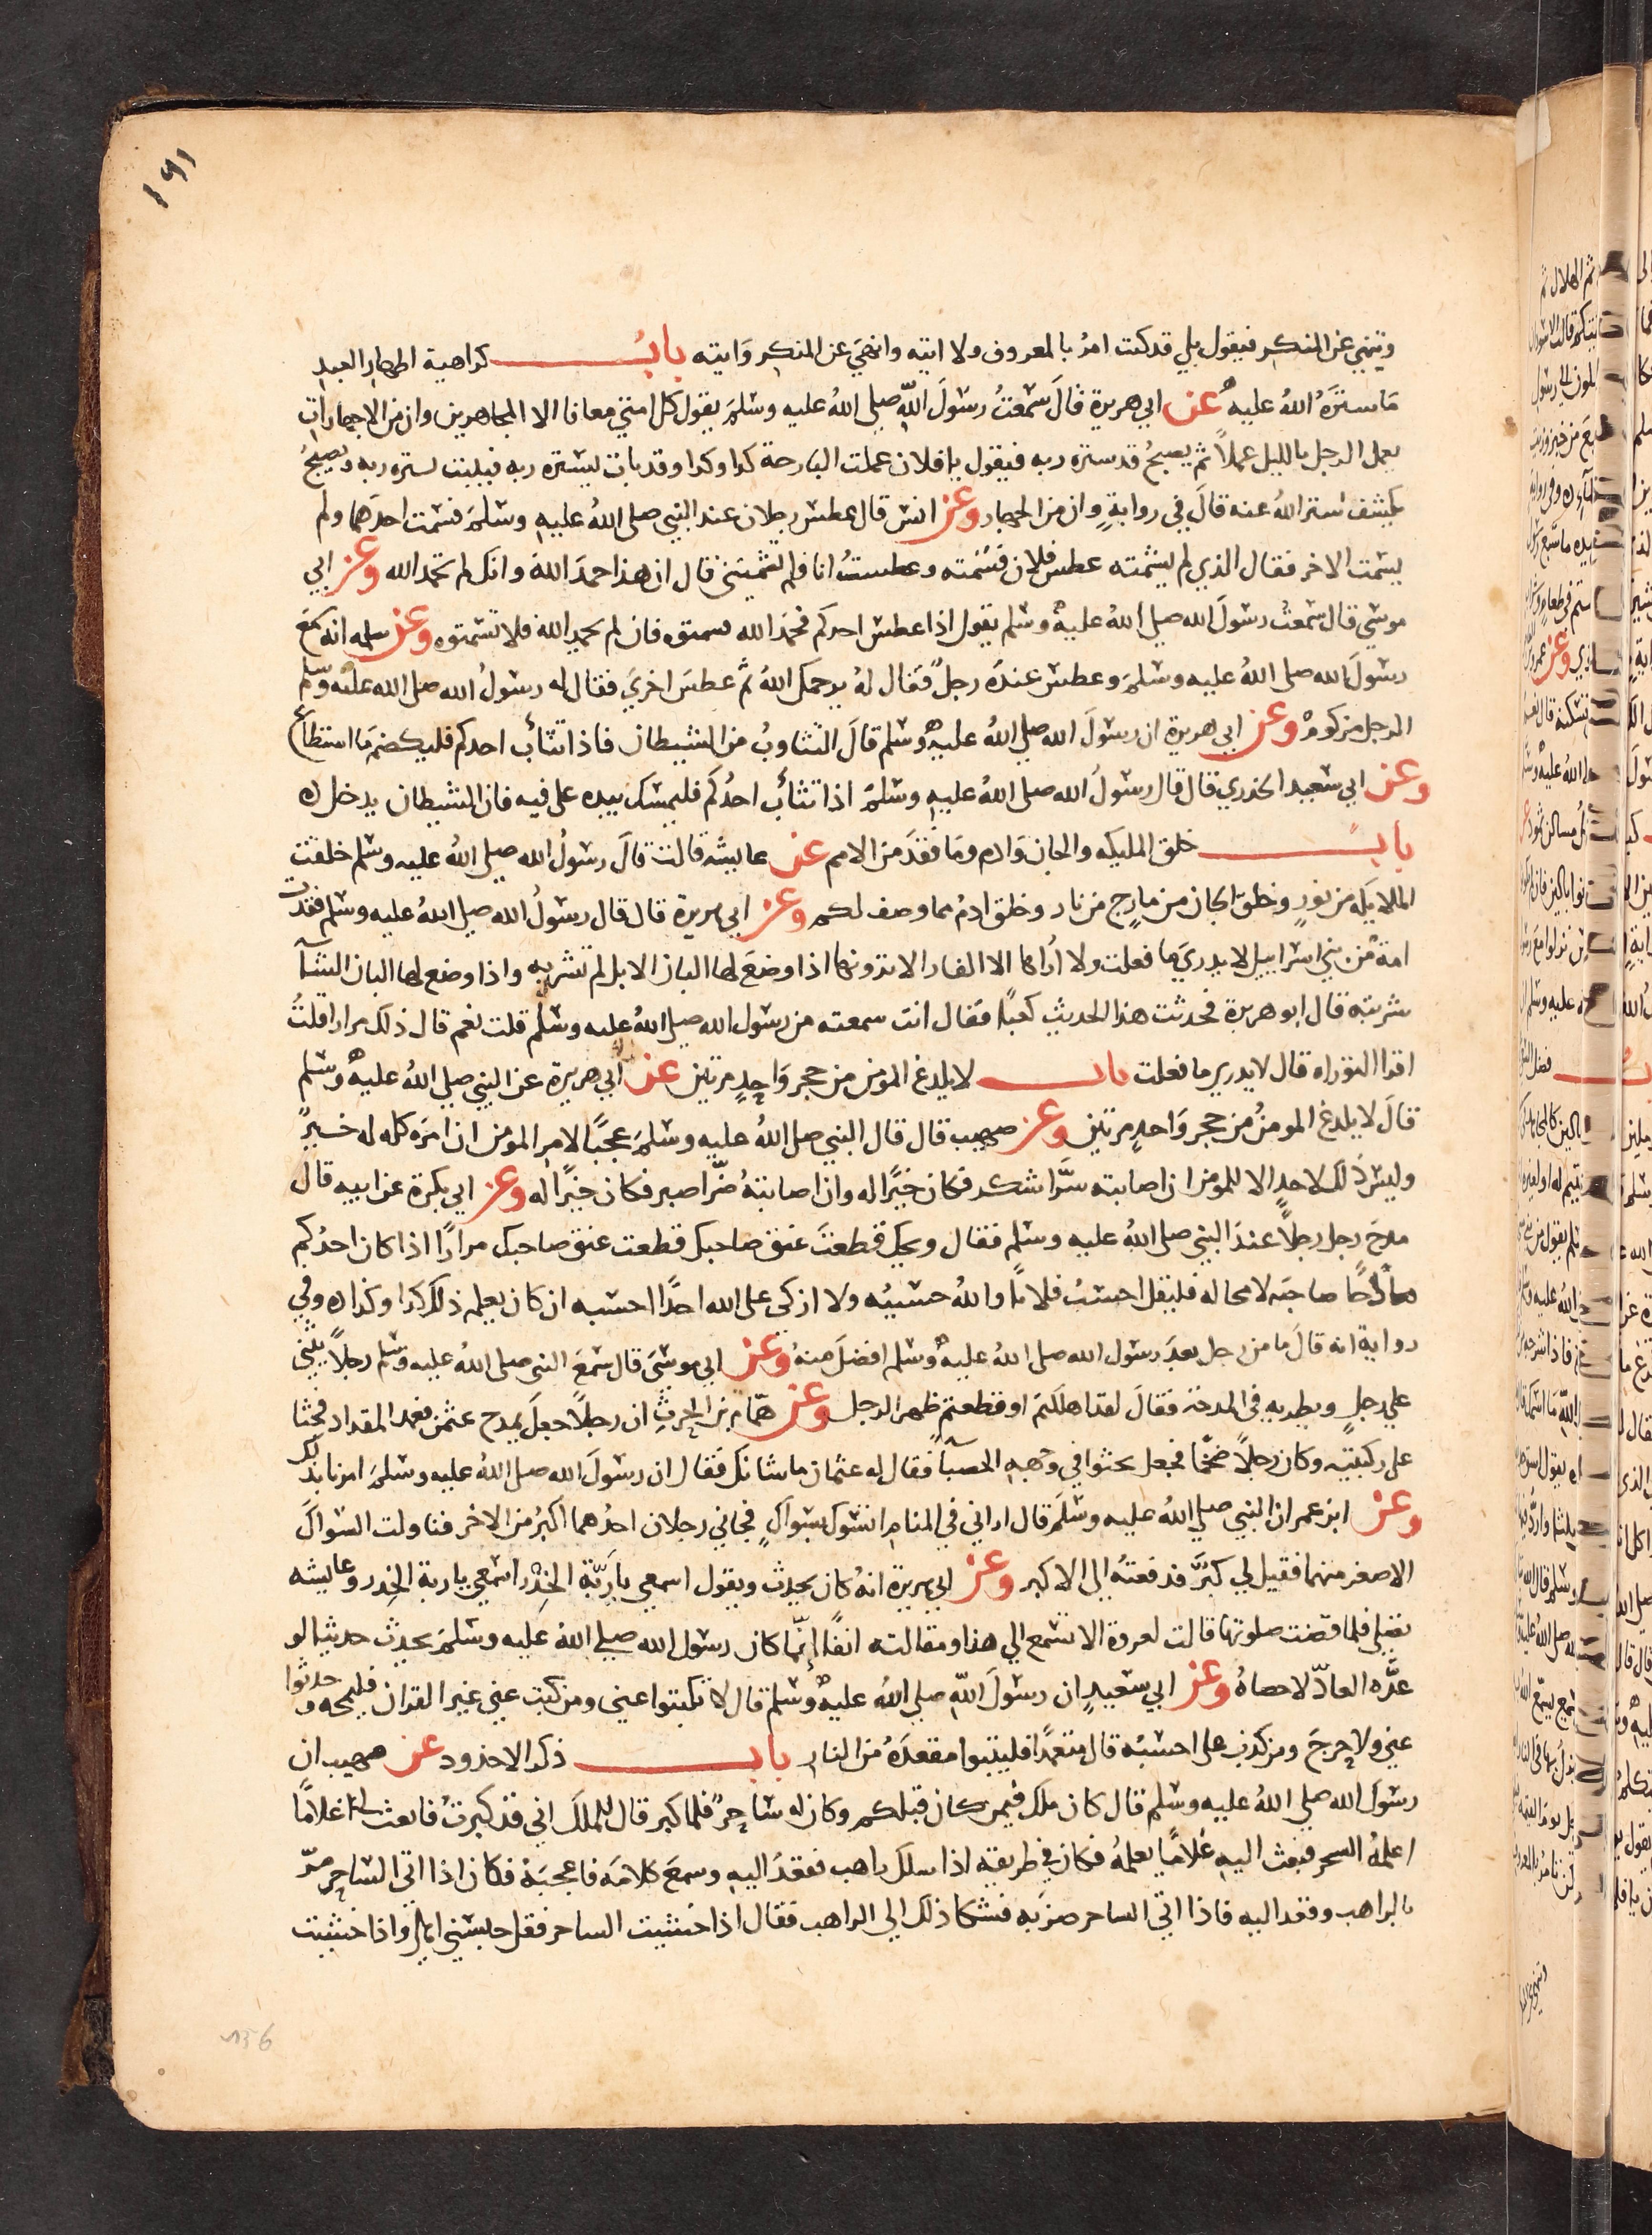 ١٩١
وتنهي عن المنكر فيقول بلي قد كنت امر بالمعروف ولا اتيه وانهي عن المنكر واتيه باب كراهية اظهار العبد
ما ستره الله عليه عن ابي هريرة قال سمعت رسول الله صلى الله عليه وسلم يقول كل امتي معافا الا المجاهرين وان من الاجهار ان
يعمل الرجل بالليل عملاً ثم يصبح قد ستره ربه فيقول يا فلان عملت البارحة كذا وكذا وقد بات يستره ربه فيبيت يستره ربه ويصبح
يكشف ستر الله عنه قال في رواية وان من الجهار وعن انس قال عطس رجلان عند النبي صلى الله عليه وسلم فشمت احدهما ولم
يشمت الاخر فقال الذي لم يشمته عطس فلان فشمته وعطست انا فلم تشمتني قال ان هذا حمد الله وانك لم تحمد الله وعن ابي
موسي قال سمعت رسول الله صلى الله عليه وسلم يقول اذا عطس احدكم فحمد الله فشمتوه فان لم يحمد الله فلا تشمتوه وعن سلمه انه سمع
رسول الله صلى الله عليه وسلم وعطس عنده رجل فقال له يرحمك الله ثم عطس اخري فقال له رسول الله صلى الله عليه وسلم
الرجل مزكوم وعن ابي هريرة ان رسول الله صلى الله عليه وسلم قال التثاوب من الشيطان فاذا تثأب احدكم فليكضم ما استطاع
وعن ابي سعيد الخدري قال قال رسول الله صلى الله عليه وسلم اذا تثأب احدكم فليمسك بيده على فيه فان الشيطان يدخل ه
باب خلق المليكه والجان وادم وما فقد من الامم عن عايشه قالت قال رسول الله صلى الله عليه وسلم خلقت
الملايكه من نور وخلق الجان من مارج من نار وخلق ادم مما وصف لكم وعن ابي هريرة قال قال رسول الله صلى الله عليه وسلم فقدت
امة من بني اسراييل لا يدري ما فعلت ولا اُراها الا الفار الا ترونها اذا وضع لها البان الابل لم تشربه واذا وضع لها البان الشآ
شربته قال ابو هريرة فحدثت هذا الحديث كعبًا فقال انت سمعته من رسول الله صلى الله عليه وسلم قلت نعم قال ذلك مرارا قلت
اقرا التوراه قال لا يدري ما فعلت باب لا يلدغ المومن من حجر واحد مرتين عن ابي هريرة عن النبي صلى الله عليه وسلم
قال لا يلدغ المومن من حجر واحد مرتين وعن صهيب قال قال النبي صلى الله عليه وسلم عجبًا لامر المومن ان امره كله له خير
وليس ذلك لاحد الا للمومن ان اصابته سرَّا شكر فكان خيرًا له وان اصابته ضرّا صبر فكان خيرًا له وعن ابي بكرة عن ابيه قال
مدح رجل رجلاً عند النبي صلى الله عليه وسلم فقال ويحك قطعت عنق صاحبك قطعت عنق صاحبك مرارًا اذا كان احدكم
مادحًا صاحبه لا محاله فليقل احسب فلانًا والله حسيبه ولا ازكى على الله احدًا احسبه ان كان يعلم ذلك كذا وكذا ه وفي
رواية انه قال ما من رجل بعد رسول الله صلى الله عليه وسلم افضل منه وعن ابي موسى قال سمع النبي صلى الله عليه وسلم رجلاً يثني
علي رجل ويطريه في المدحة فقال لقد اهلكتم او قطعتم ظهر الرجل وعن همّام بن الحرث ان رجلاً جعل يمدح عثمن فعمد المقداد فجثا
على ركبتيه وكان رجلاً ضخمًا فجعل يحثوا في وجهه الحصبآ فقال له عثمان ما شانك فقال ان رسول الله صلى الله عليه وسلم امرنا بذلك
وعن ابن عمر ان النبي صلى الله عليه وسلم قال اراني في المنام اتسوك بسواك فجاني رجلان احدهما اكبر من الاخر فناولت السواك
الاصغر منهما فقيل لي كبّر فدفعته الى الاكبر وعن ابي هريرة انه كان يحدث ويقول اسمعي ياربّة الخِدْر اسمعي ياربة الخِدر وعايشه
تصلي فلما قضت صلوتها قالت لعروة الا تسمع الي هذا ومقالته انفًا إنّما كان رسول الله صلى الله عليه وسلم يحدث حديثا لو
عدَّه العادّ لاحصاهُ وعن ابي سعيد ان رسول الله صلى الله عليه وسلم قال لا تكتبوا عني ومن كتب عني غير القران فليمحه وحدثوا
عني ولا حرج ومن كذب على احسبه قال متعمدًا فليتبوا مقعده من النار باب ذكر الاخدود عن صهيب ان
رسول الله صلى الله عليه وسلم قال كان ملك فيمن كان قبلكم وكان له ساحر فلما كبر قال للملك اني قد كبرت فابعث لي غلامًا
اعلمه السحر فبعث اليه غلامًا يعلمه فكان في طريقه اذا سلك راهب فقعد اليه وسمع كلامه فاعجبه فكان اذا اتى الساحر مرّ
بالراهب وقعد اليه فاذا اتي الساحر ضربه فشكا ذلك الي الراهب فقال اذا خشيت الساحر فقل حبسني اهلي واذا خشيت